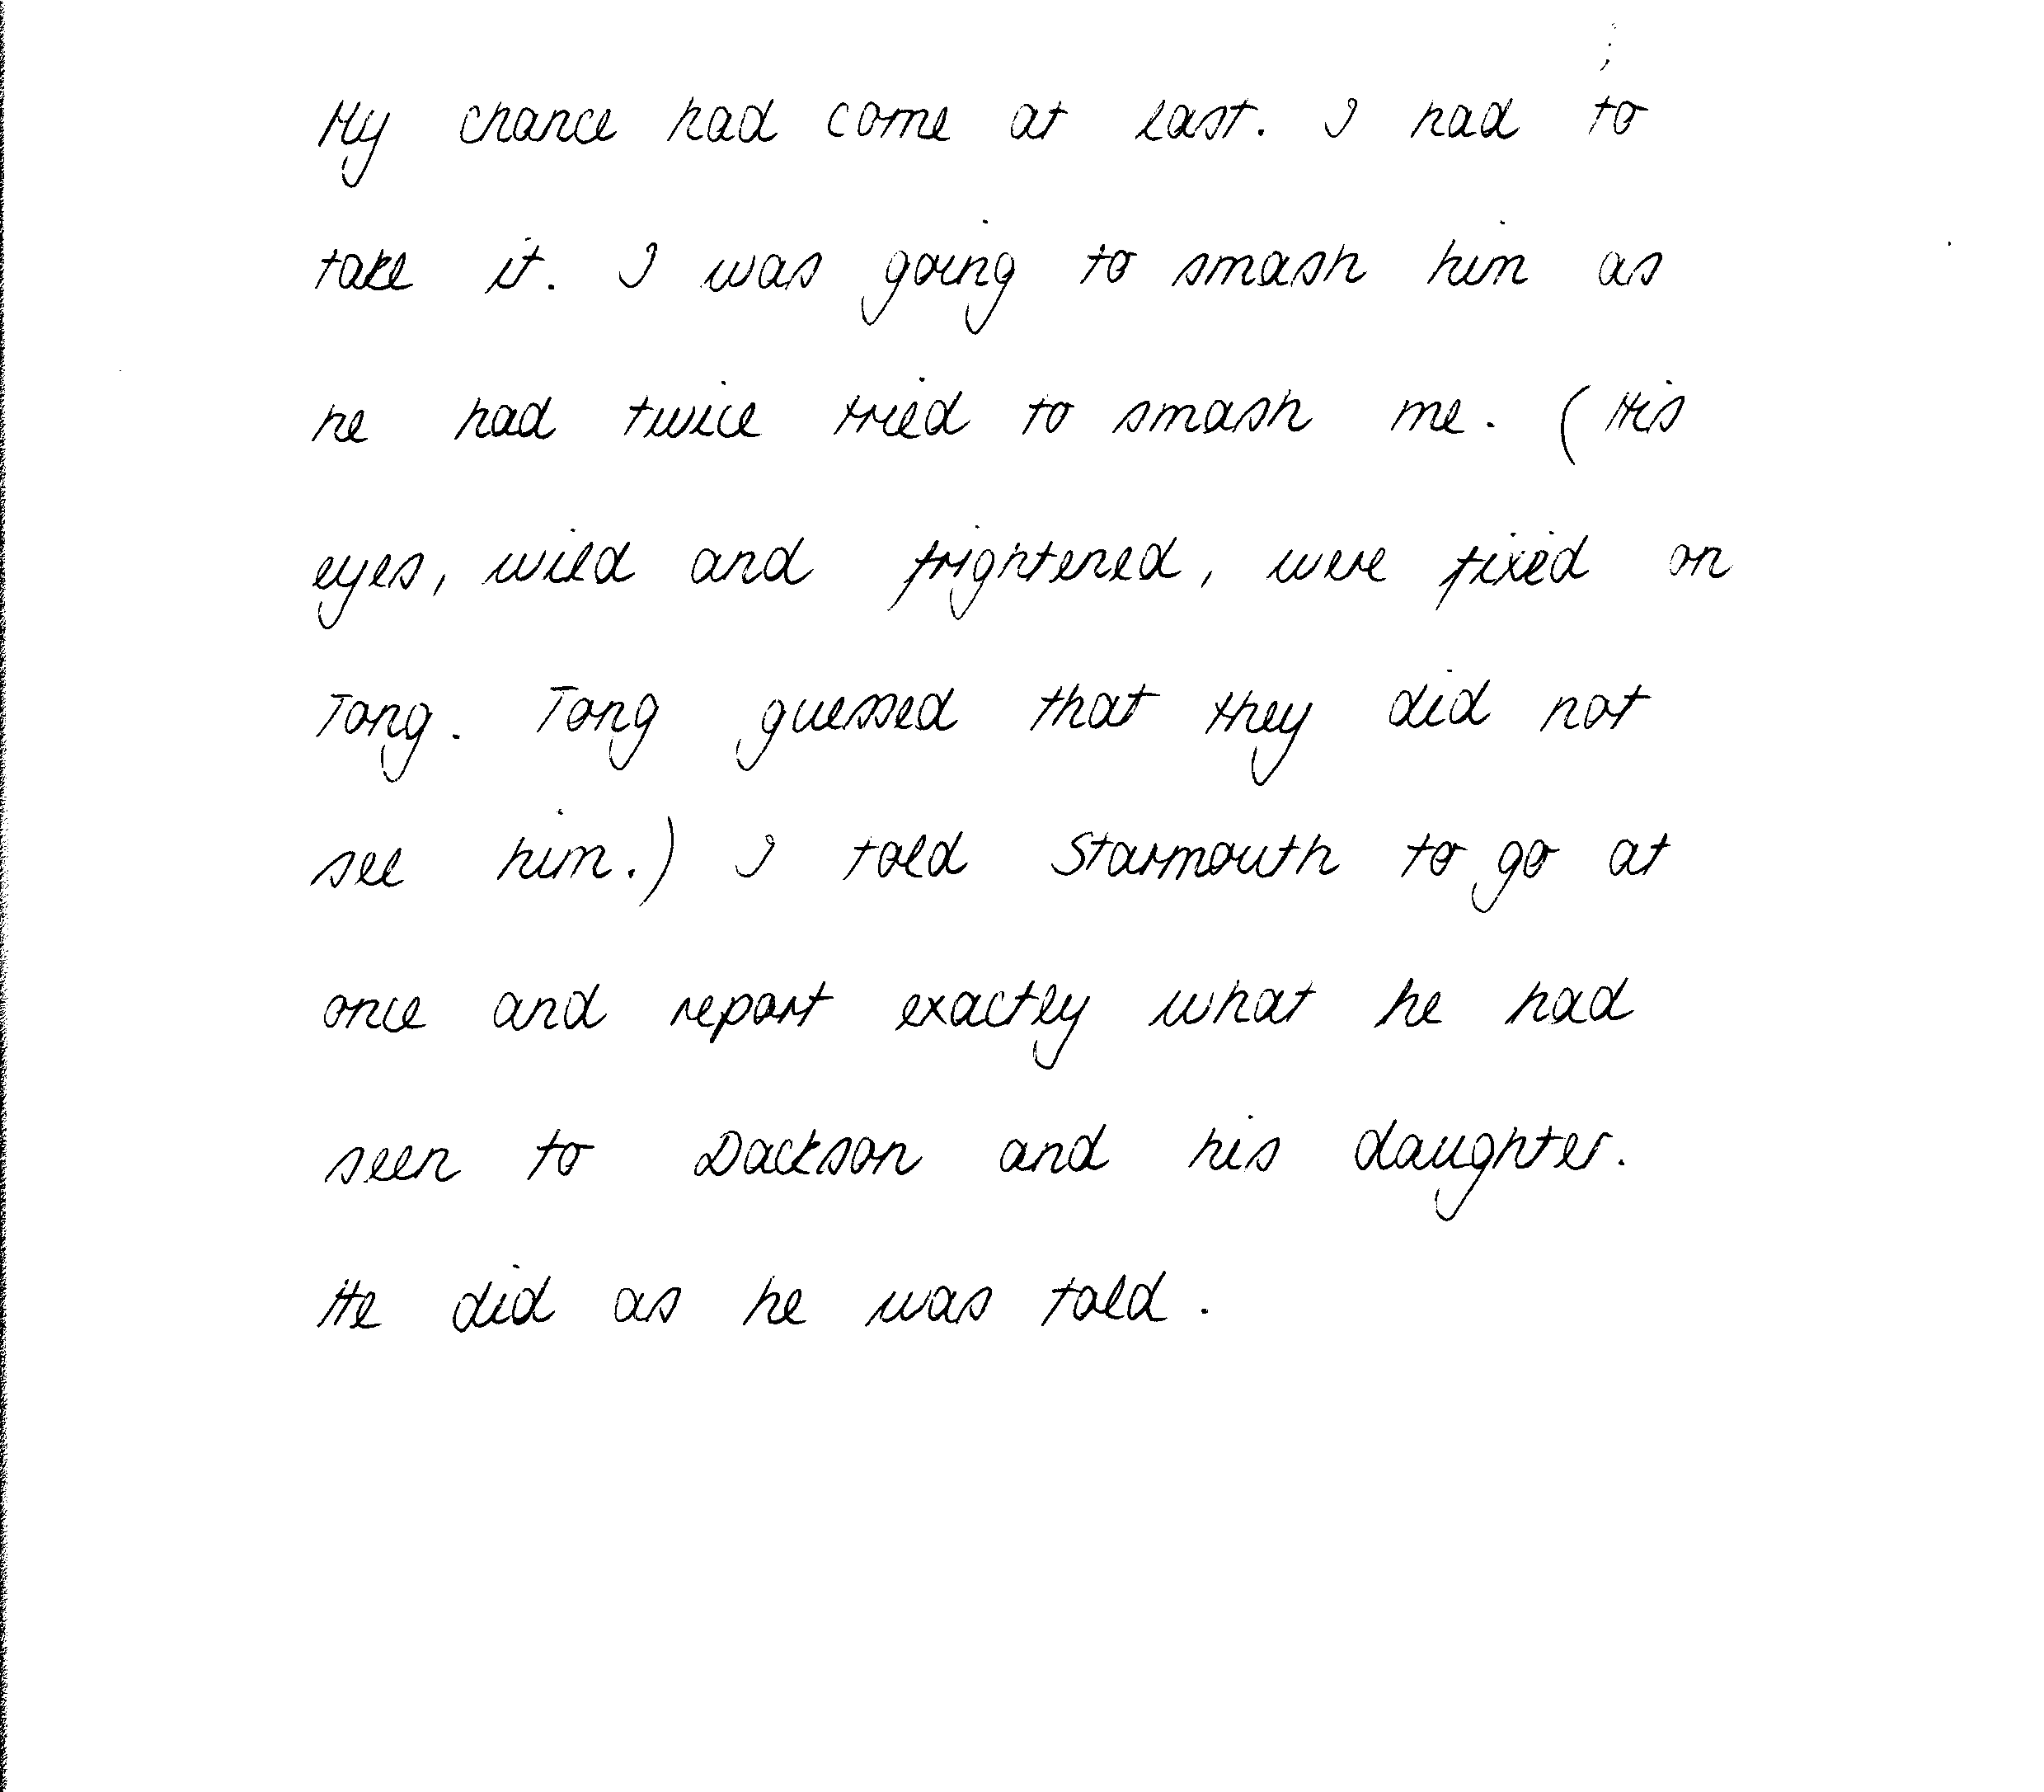 My chance had come at last. I had to
take it. I was going to smash him as
he had twice tried to smash me. (His
eyes, wild and frightened, were fixed on
Tong. Tong guessed that they did not
see him.) I told Starmouth to go at
once and report exactly what he had
seen to Dackson and his daughter.
He did as he was told.